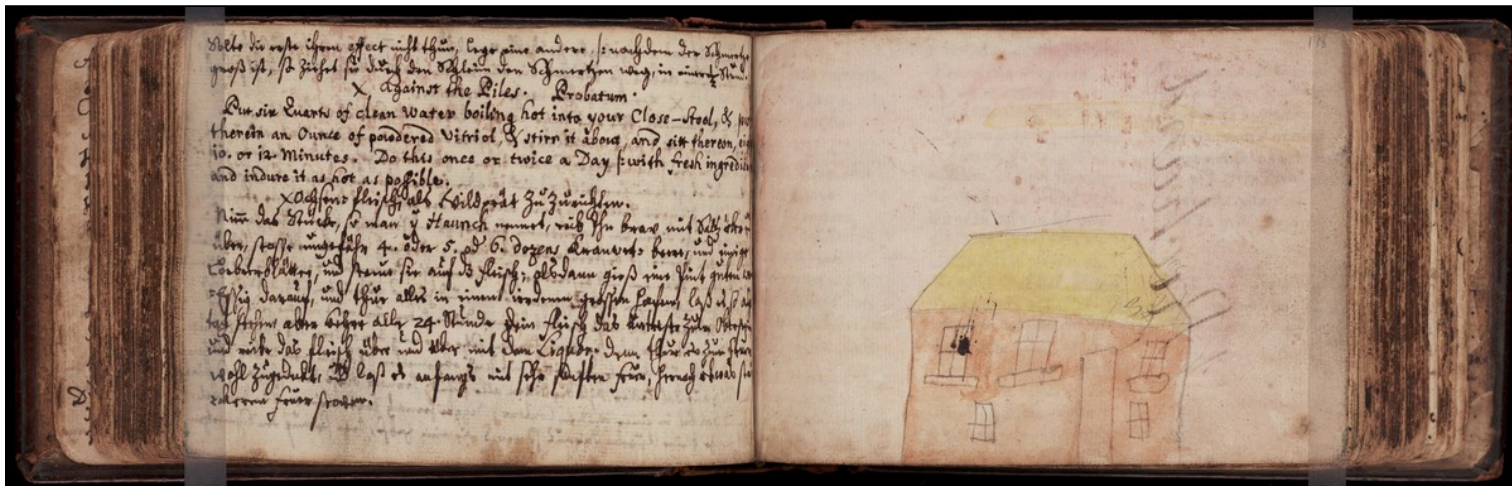 Solte die erste ihren effect nicht thun, lege eine andere, /: nachdem der Schmertz
groß ist, so ziehet sie durch den Schleim den Schmertzen weg, in einer
X Against the Piles. Probatum.
Put six Quarts of clean water boiling hot into your Close-stool, &
therein an Ounce of powdered Vitriol, & stirr it about, and sitt thereon,
10. or 12. Minutes. Do this once or twice a Day /: with fresh
and indure it as hot as possible.
X Ochsen fleisch, als Wildprät zu zurichten.
Nim̅ das Stücke, so man ÿ Haunch nennet, reib Ihn brav mit Saltz
über, stosse ungefähr 4. oder 5. od 6. dozens Kranwit= beere, und
Lorbeerblätter, und streue sie auf dß fleisch; alsdann gieß eine Pint guten
Essig darauf, und thue alles in einem irdenen grossen hafen, laß es so
stehen aber kehre alle 24. Stunde dein fleisch das unterste zum
und reibe das fleisch über und über mit dem Liquor. dann thue es zum
wohl zugedeckt, laß es anfangs mit sehr sanften feur, hernach etwas
feuer stoven.
178